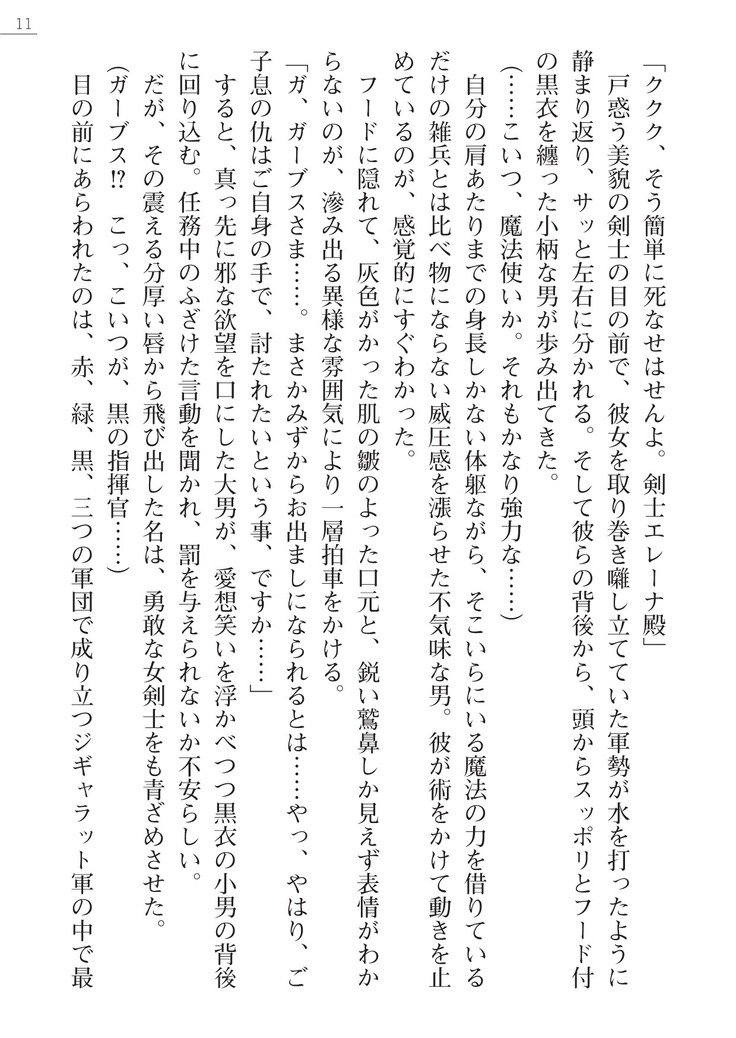 11
「ククク、そう簡単に死なせはせんよ。剣士エレーナ殿」
　戸惑う美貌の剣士の目の前で、彼女を取り巻き囃し立てていた軍勢が水を打ったように
静まり返り、サッと左右に分かれる。そして彼らの背後から、頭からスッポリとフード付
の黒衣を纏った小柄な男が歩み出てきた。
（……こいつ、魔法使いか。それもかなり強力な……）
　自分の肩あたりまでの身長しかない体躯ながら、そこいらにいる魔法の力を借りている
だけの雑兵とは比べ物にならない威圧感を漲らせた不気味な男。彼が術をかけて動きを止
めているのが、感覚的にすぐわかった。
　フードに隠れて、灰色がかった肌の皺のよった口元と、鋭い鷲鼻しか見えず表情がわか
らないのが、滲み出る異様な雰囲気により一層拍車をかける。
「ガ、ガーブスさま……。まさかみずからお出ましになられるとは……やっ、やはり、ご
子息の仇はご自身の手で、討たれたいという事、ですか……」
　すると、真っ先に邪な欲望を口にした大男が、愛想笑いを浮かべつつ黒衣の小男の背後
に回り込む。任務中のふざけた言動を聞かれ、罰を与えられないか不安らしい。
　だが、その震える分厚い唇から飛び出した名は、勇敢な女剣士をも青ざめさせた。
（ガーブス⁉　こっ、こいつが、黒の指揮官……）
　目の前にあらわれたのは、赤、緑、黒、三つの軍団で成り立つジギャラット軍の中で最